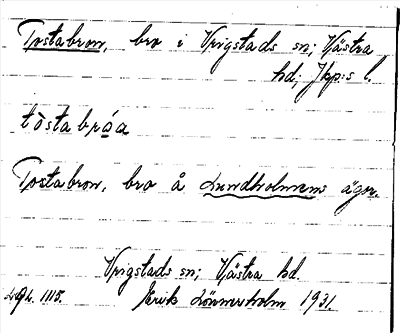 Tostabron, bro i Vrigstads sn; Västra
hd; Jkp:s l.
tòstabróa
Tostabron, bro å Lundholmens ägor.
Vrigstads sn; Västra hd.
Erik Lönnerholm 1931.